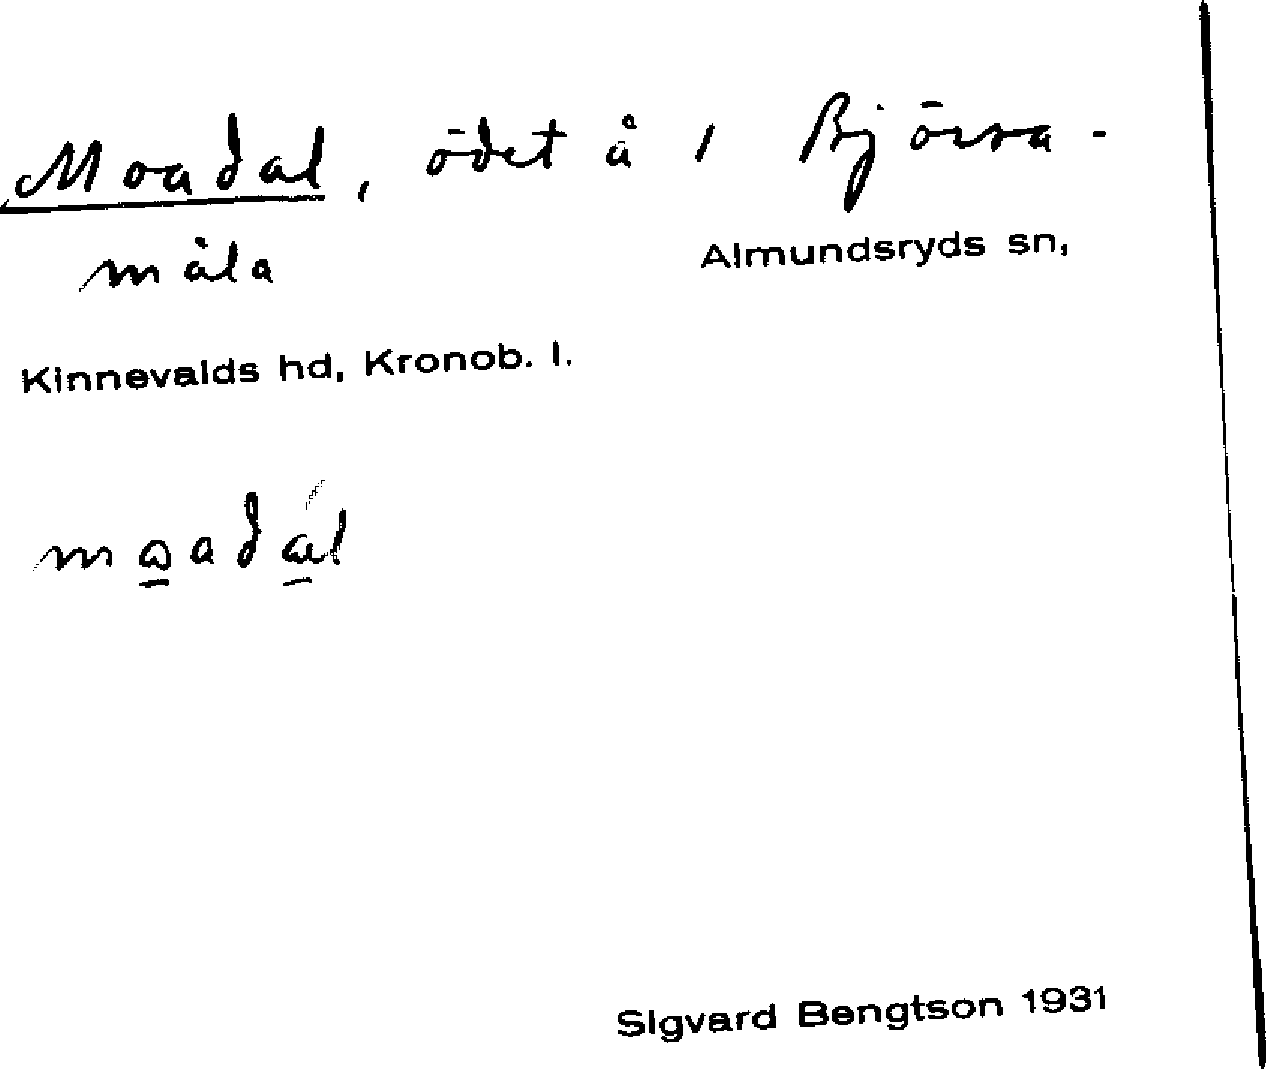 Moadal, ödet å 1 Björsa-
måla
Almundsryds sn,
Kinnevalds hd, Kronob. l.
Sigvard Bengtson 1931